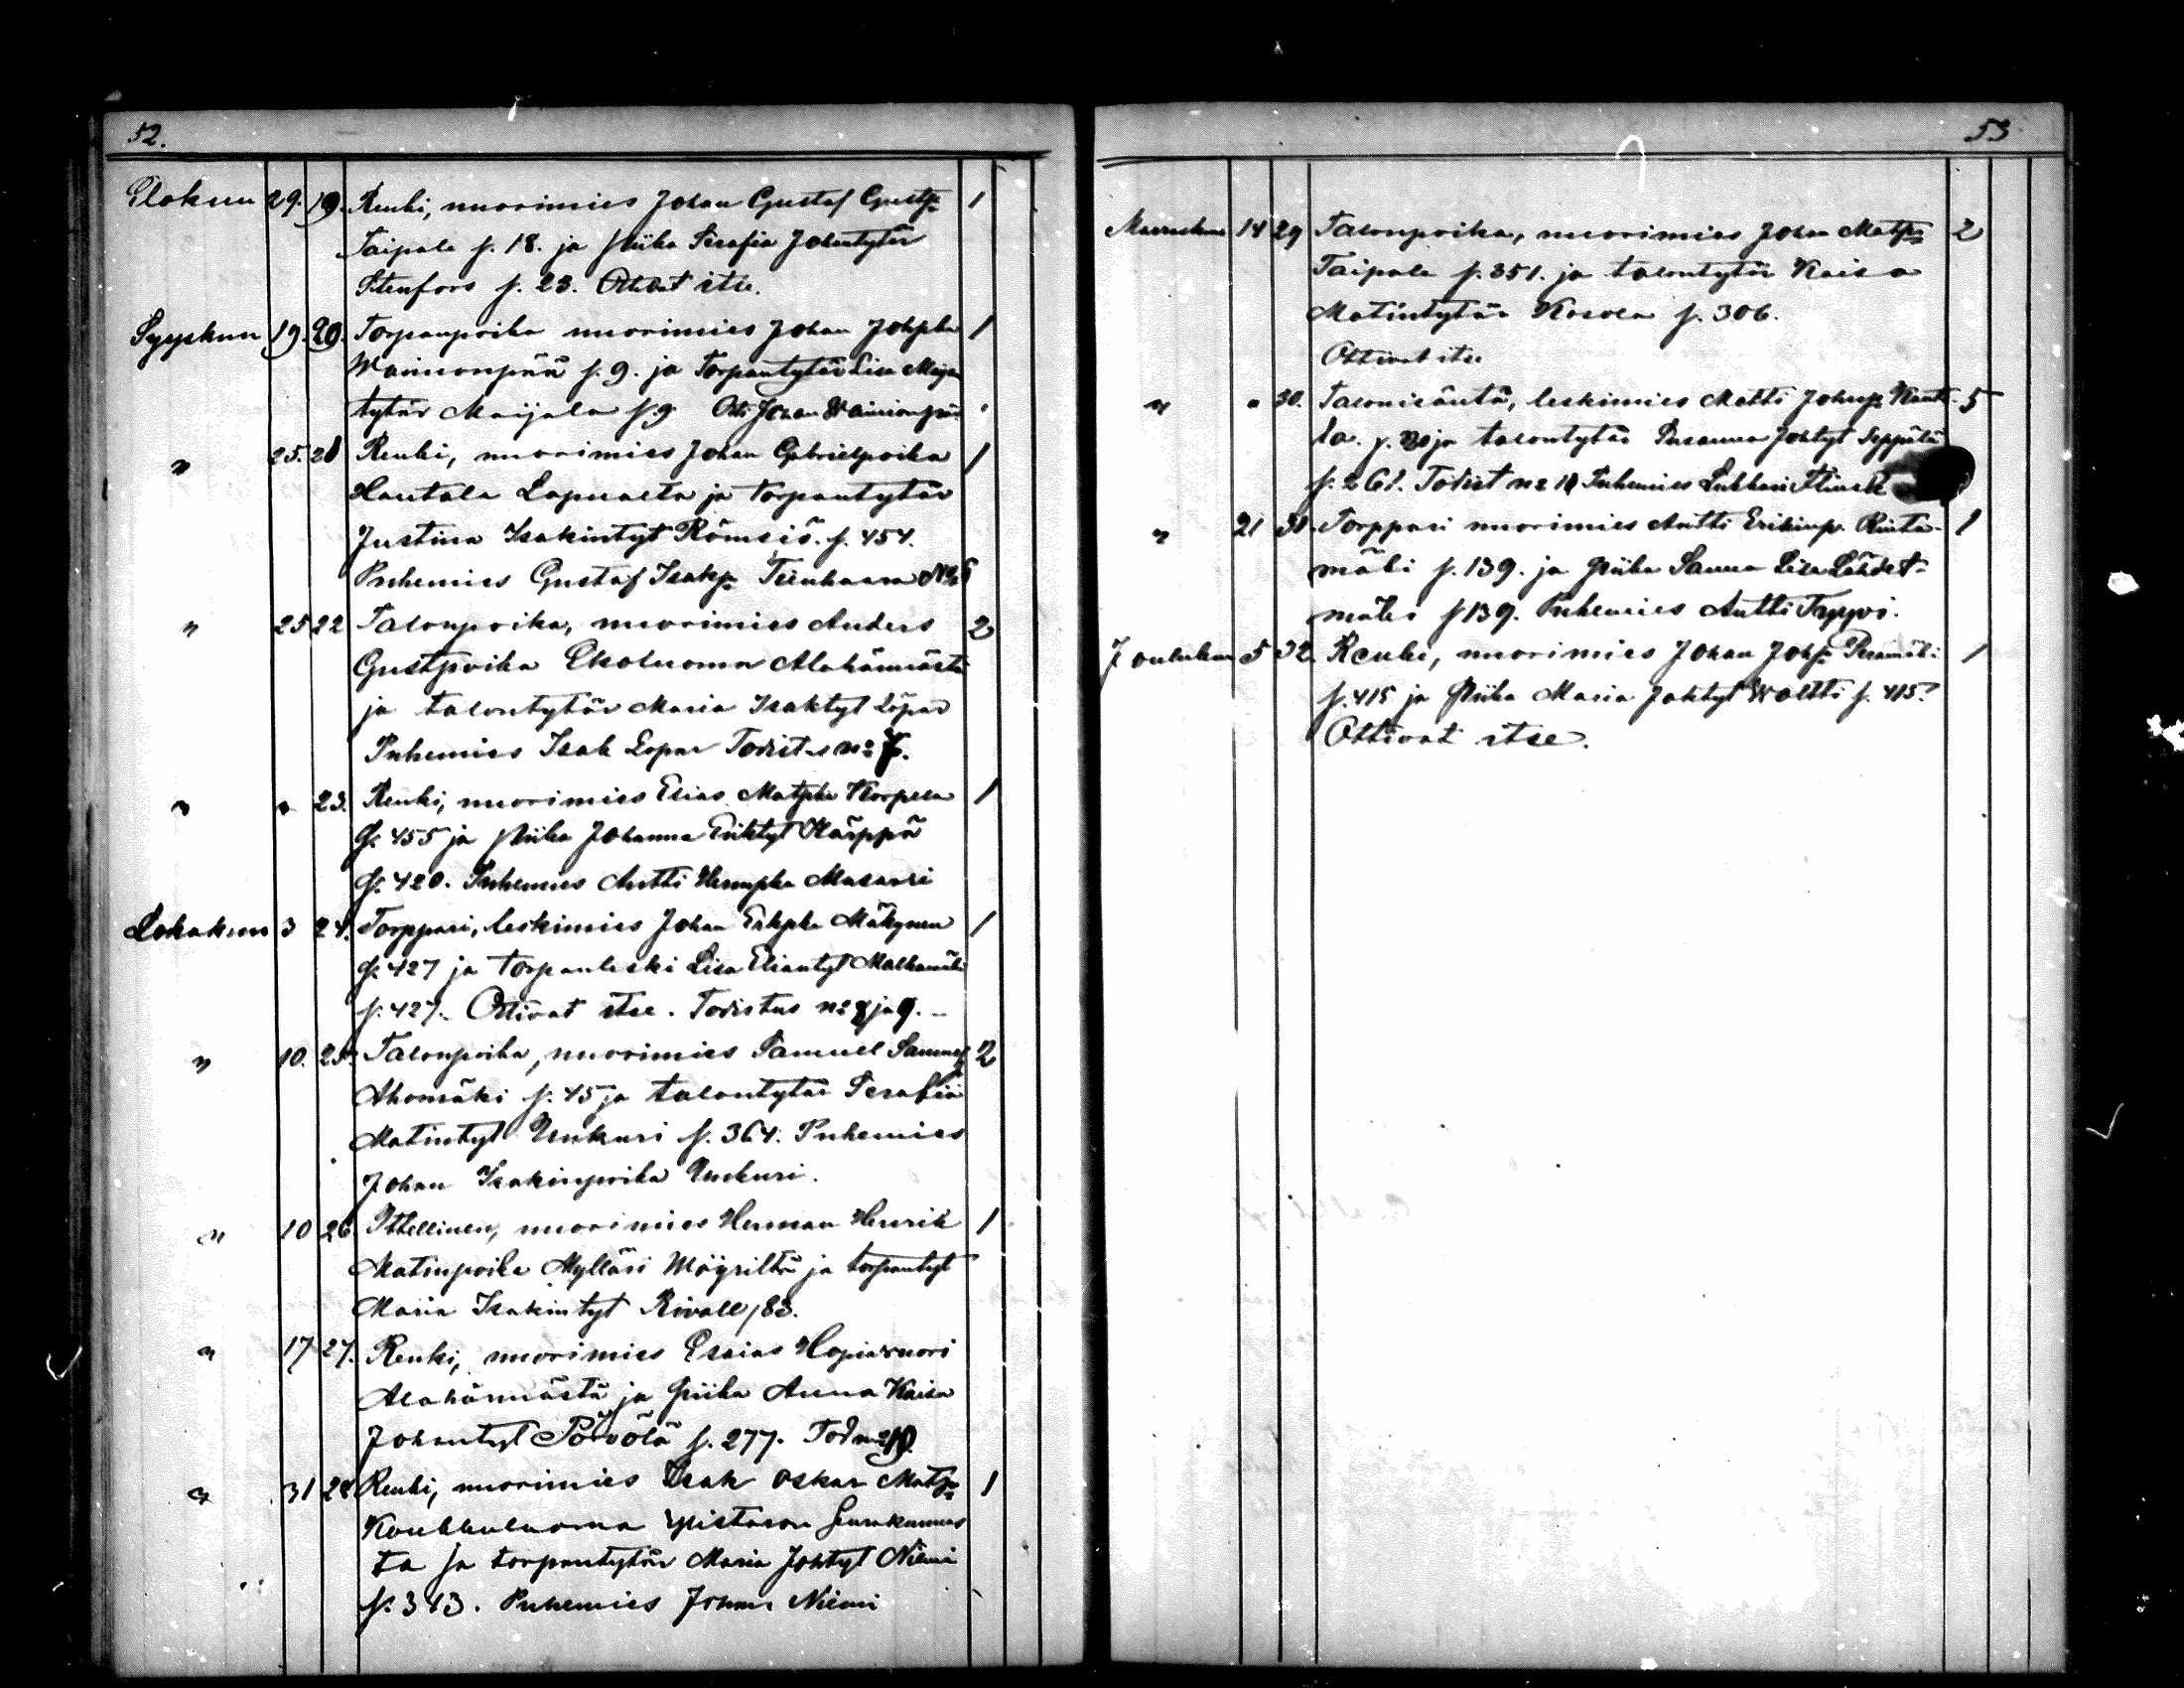 52.
Elokuun 29. 19. Renki, nuorimies Johan Gustaf Gustp: 1
Taipale s. 18. ja piika Serafia Johantytär
Stenfors s. 23. Ottivat itse.
Syyskuun 19. 20. Torpanpoika nuorimies Johan Johpka 1
Wainionpää s. 9. ja Torpantytär Lisa
tytär Maijala s. 9. Otti Johan Wainionpää
" 25. 21 Renki, nuorimies Johan Gabrielpoika 1
Hautala Lapualta ja torpantytär
Justina Isakintyt Römsiö. s. 454.
Puhemies Gustaf Isakp: No 6
" 25 22 Talonpoika, nuorimies Anders 2
Gustpoika Ekoluoma Alahärmästä
ja talontytär Maria Isaktyt Löpar
Puhemies Isak Lopar Todistus no 7.
" " 23. Renki, nuorimies Elias Matpka Korpela 1
S. 455 ja piika Johanna Eriktyt Kärppä
S. 420. Puhemies Antti Masaari
Lokakuun 3 24. Torppari, leskimies Johan Erkpka Mäkynen 1
S. 427 ja torpanleski Lisa Eliantyt Malkamäki
s. 427. Ottivat itse. Todistus no 8 ja 9. -
" 10. 25. Talonpoika, nuorimies Samuel Samuelp 2
Ahomäki s. 45 ja talontytär Serafiia
Matintyt Unkuri s. 364. Puhemies
Johan Isakinpoika Unkuri.
" 10 26. Itsellinen, nuorimies Herman Henrik 1
Matinpoika Mylläri Wöyriltä ja torpantyt
Maria Isakintyt Rivall 83.
" 17 27. Renki, nuorimies Esaias Hopiavuori
Alahärmästä ja piika Anna Kaisa
Johantyt Pöyölä s. 277. Tod no 10.
" 31 28 Renki, nuorimies Isak Oskar Matp: 1
Koukkuluoma Ylistaron Seurakunnas
ta ja torpantytär Maria Johtyt Niemi
s. 343. Puhemies Johan Niemi
53
Marraskuu 14 29 Talonpoika, nuorimies Johan Matp: 2
Taipale s. 351. ja talontytär Kaisa
Matintytär Kosola s. 306.
Ottivat itse
" " 30. Talonisäntä, leskimies Matti Johnp: 5
la. ja talontytär Susanna Johtyt Seppälä
s. 261. Todist no 11 Puhemies Lukkari
" 21 31. Torppari nuorimies Antti Erikinp. Rinta- 1
mäki s. 139. ja piika Sanna Lisa Lähdet-
mäki s 139. Puhemies Antti Tappoi.
Joulukuu 5 32. Renki, nuorimies Johan Johp: Peramäki 1
s. 415 ja piika Maria Johtyt Waltti s. 415.
Ottivat itse.